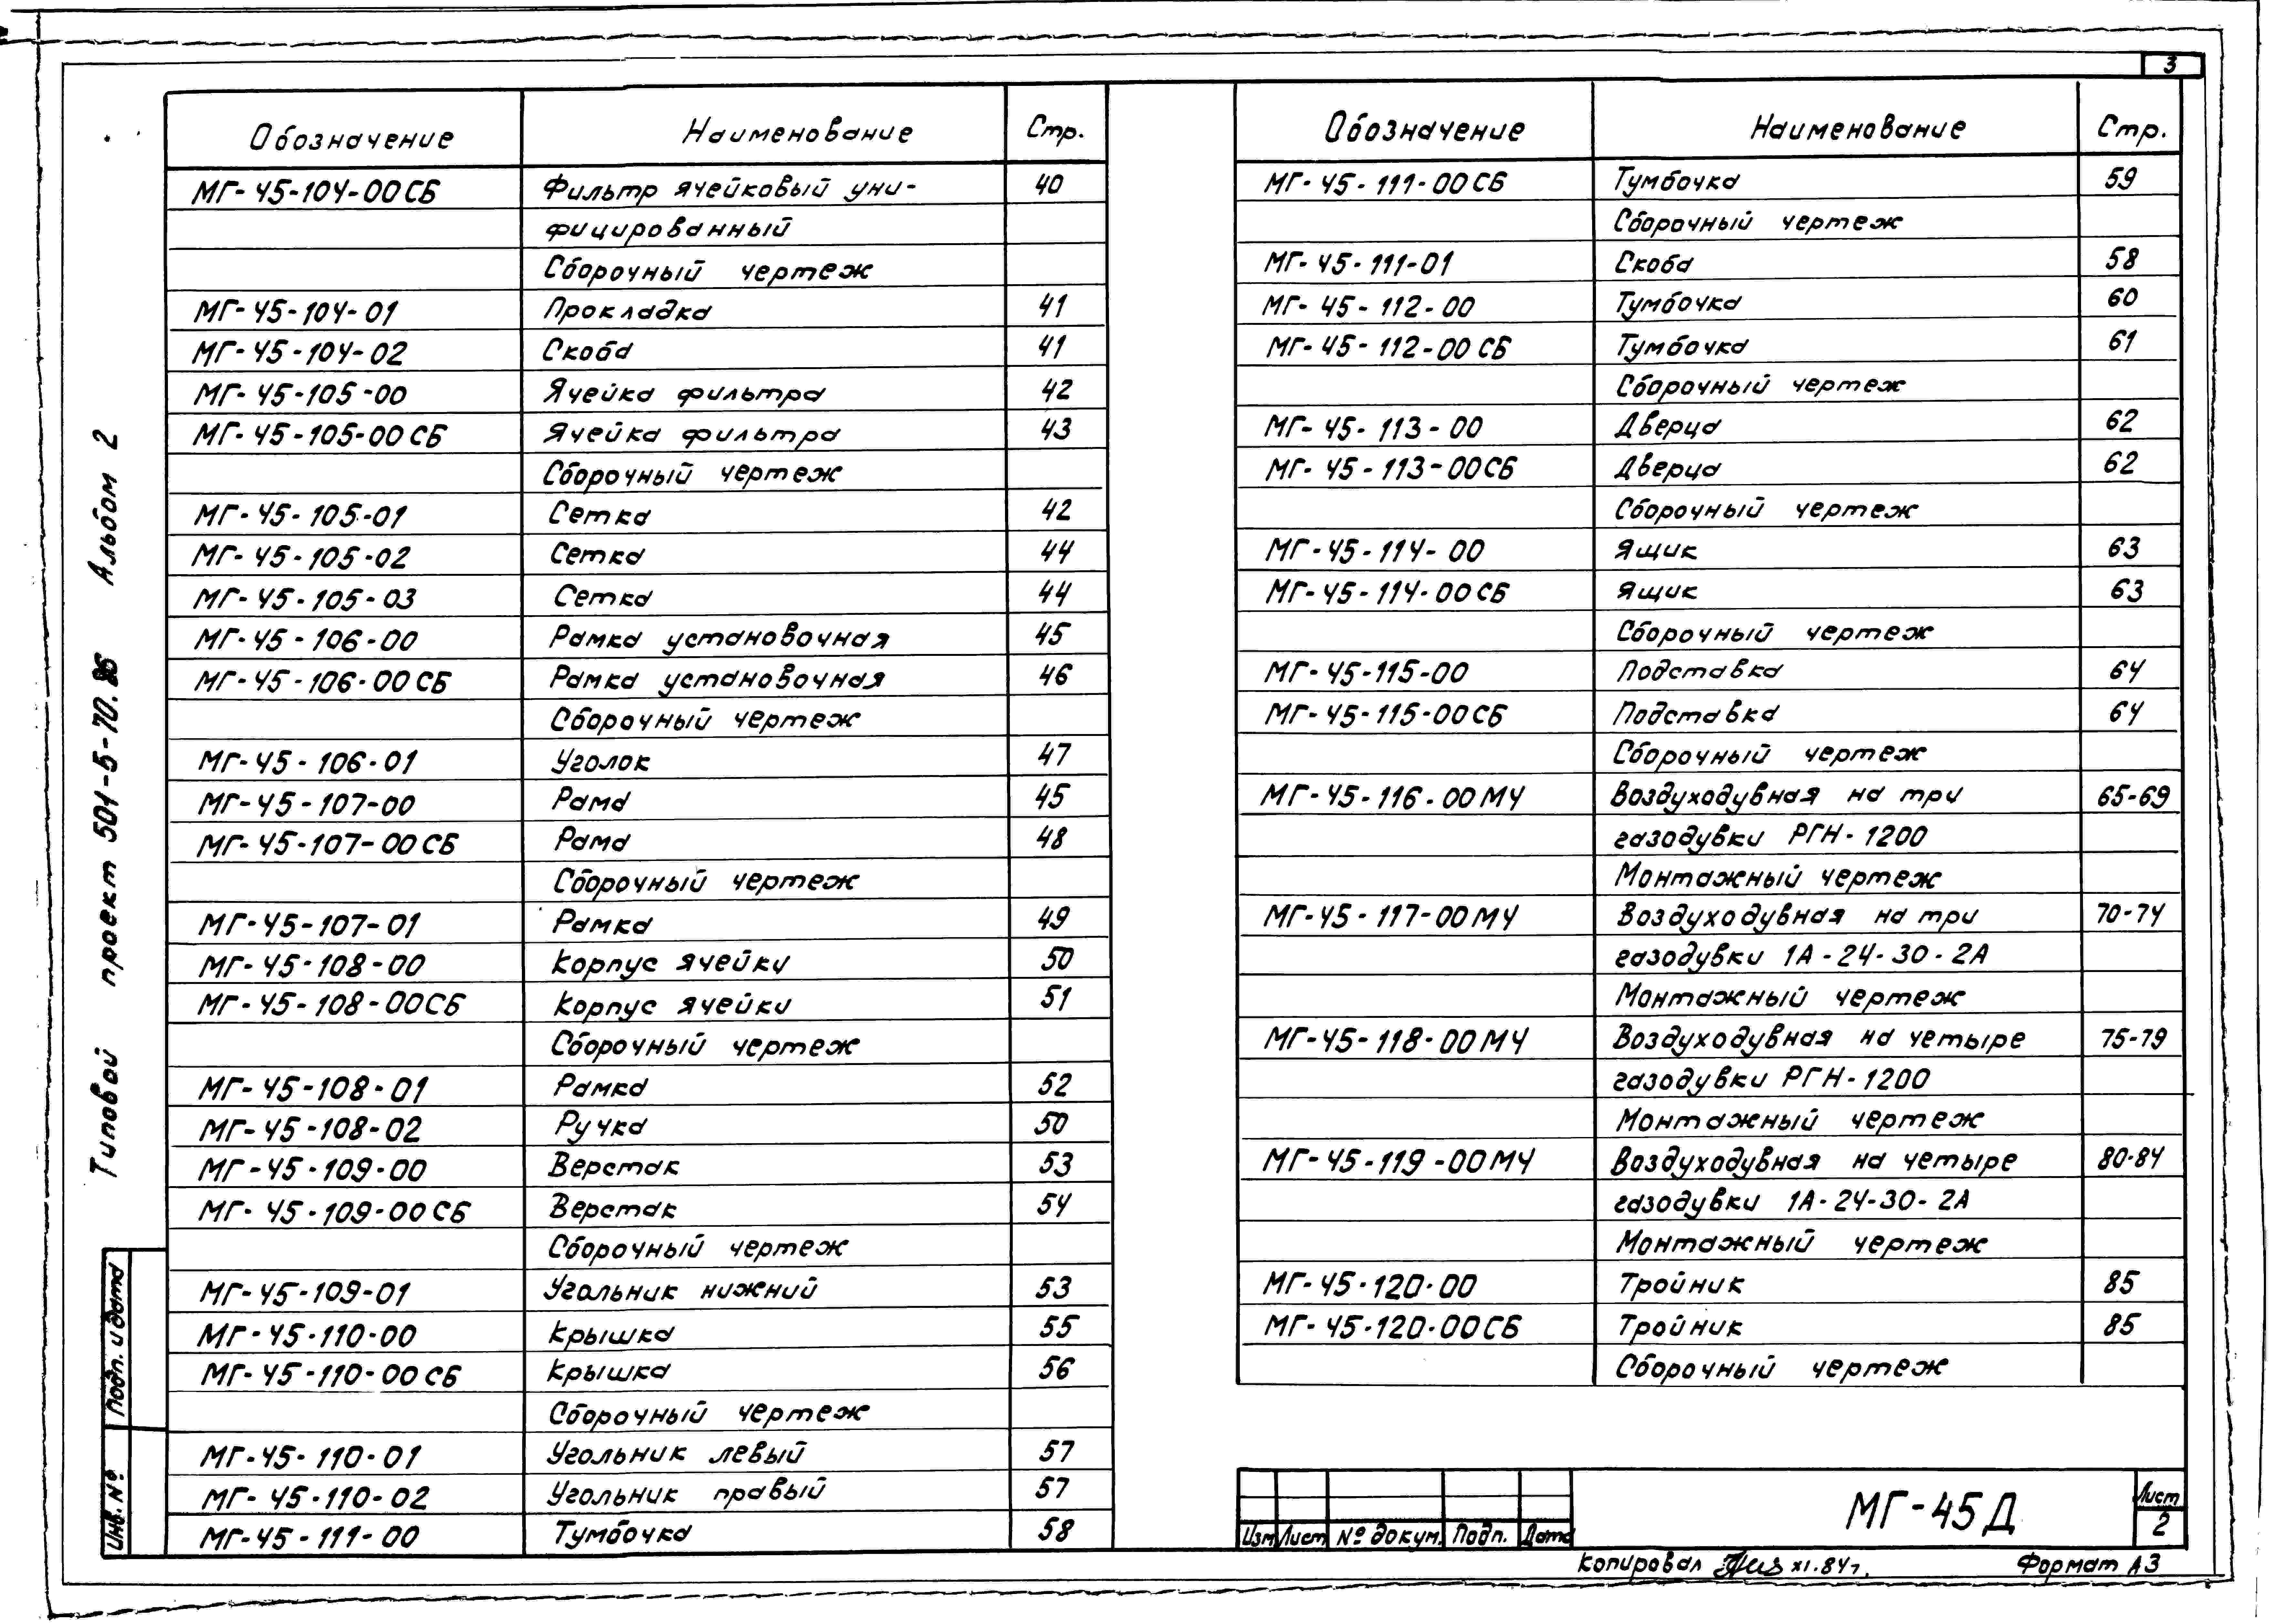 3
Обозначение Наименование Стр.
МГ-45-104-00СБ Фильтр ячейковый уни- 40
фицированный
Сборочный чертеж
МГ-45-104-01 Прокладка 41
МГ-45-104-02 Скоба 41
МГ-45-105-00 Ячейка фильтра 42
МГ-45-105-00СБ Ячейка фильтра 43
Сборочный чертеж
МГ-45-105-01 Сетка 42
МГ-45-105-02 Сетка 44
МГ-45-105-03 Сетка 44
МГ-45-106-00 Рамка установочная 45
МГ-45-106-00СБ Рамка установочная 46
Сборочный чертеж
МГ-45-106-01 Уголок 47
МГ-45-107-00 Рама 45
МГ-45-107-00СБ Рама 48
Сборочный чертеж
МГ-45-107-01 Рамка 49
МГ-45-108-00 Корпус ячейки 50
МГ-45-108-00СБ Корпус ячейки 51
Сборочный чертеж
МГ-45-108-01 Рамка 52
МГ-45-108-02 Ручка 50
МГ-45-109-00 Верстак 53
МГ-45-109-00СБ Верстак 54
Сборочный чертеж
МГ-45-109-01 Угольник нижний 53
МГ-45-110-00 Крышка 55
МГ-45-110-00СБ Крышка 56
Сборочный чертеж
МГ-45-110-01 Угольник левый 57
МГ-45-110-02 Угольник правый 57
МГ-45-111-00 Тумбочка 58
Обозначение Наименование Стр.
МГ-45-111-00СБ Тумбочка 59
Сборочный чертеж
МГ-45-111-01 Скоба 58
МГ-45-112-00 Тумбочка 60
МГ-45-112-00СБ Тумбочка 61
Сборочный чертеж
МГ-45-113-00 Дверца 62
МГ-45-113-00СБ Дверца 62
Сборочный чертеж
МГ-45-114-00 Ящик 63
МГ-45-114-00СБ Ящик 63
Сборочный чертеж
МГ-45-115-00 Подставка 64
МГ-45-115-00СБ Подставка 64
Сборочный чертеж
МГ-45-116-00МЧ Воздуходувная на три 65-69
газодувки РГН-1200
Монтажный чертеж
МГ-45-117-00МЧ Воздуходувная на три 70-74
газодувки 1А-24-30-2А
Монтажный чертеж
МГ-45-118-00МЧ Воздуходувная на четыре 75-79
газодувки РГН-1200
Монтажный чертеж
МГ-45-119-00МЧ Воздуходувная на четыре 80-84
газодувки 1А-24-30-2А
Монтажный чертеж
МГ-45-120-00 Тройник 85
МГ-45-120-00СБ Тройник 85
Сборочный чертеж
Типовой проект 501-5-70. Альбом 2
Подп. и дата
Инв. №
Изм Лист № докум. Подп. Дата
МГ-45Д
Лист
2
Копировал XI.84г. Формат А3